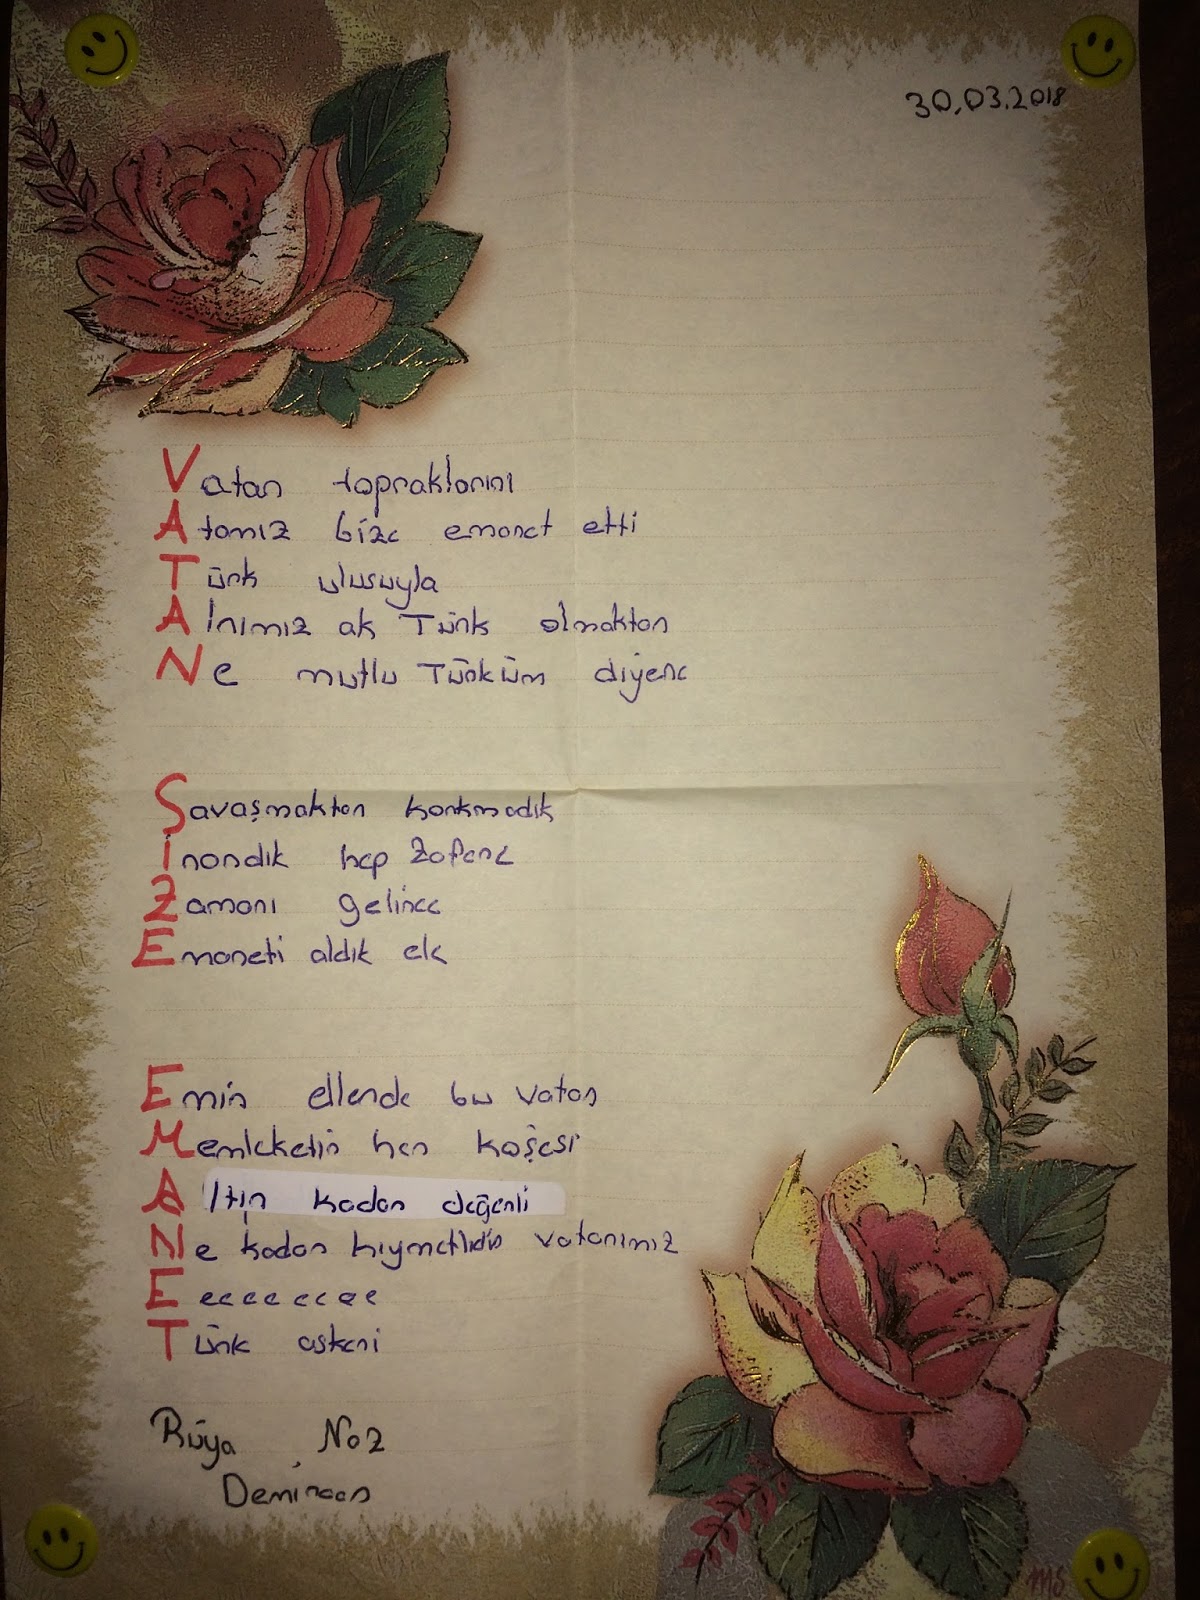 30.03.2018
Vatan topraklarını
Atamız bize emanet etti
Türk ulusuyla
Alnımız ak Türk olmaktan
Ne mutlu Türküm diyene
Savaşmaktan korkmadık
İnandık hep zafere
Zamanı gelince
Emaneti aldık ele
Emin ellerde bu vatan
Memleketin her köşesi
Altın kadar değerli
Ne kadar kıymetlidir vatanımız
Eeeeeeeee
Türk askeri
Rüya Naz
Demircan
MS